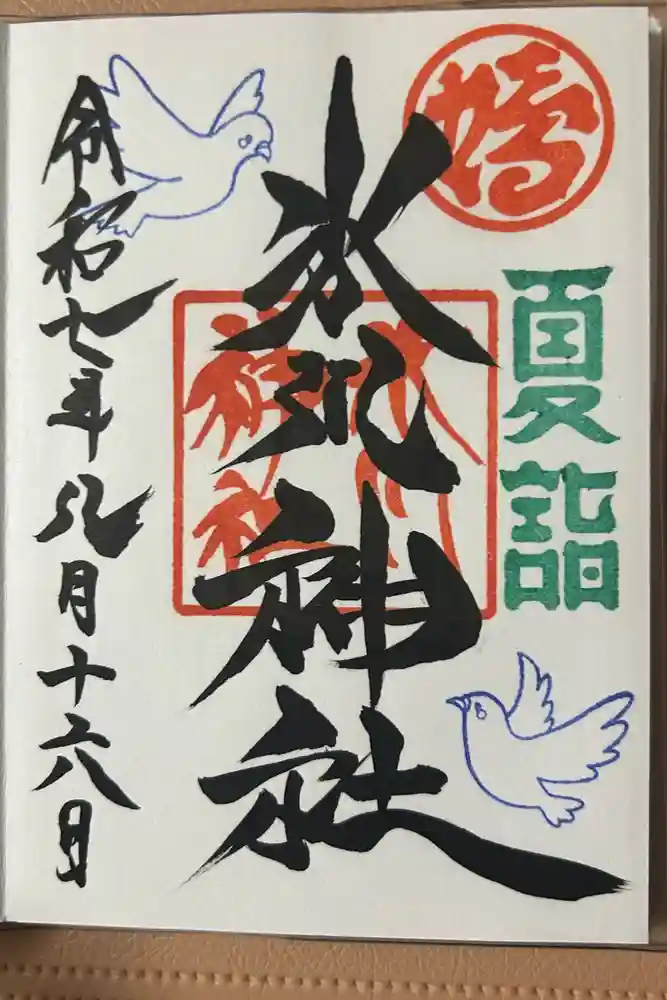 夏詣
氷川神社
氷川
神社
令和七年八月十六日